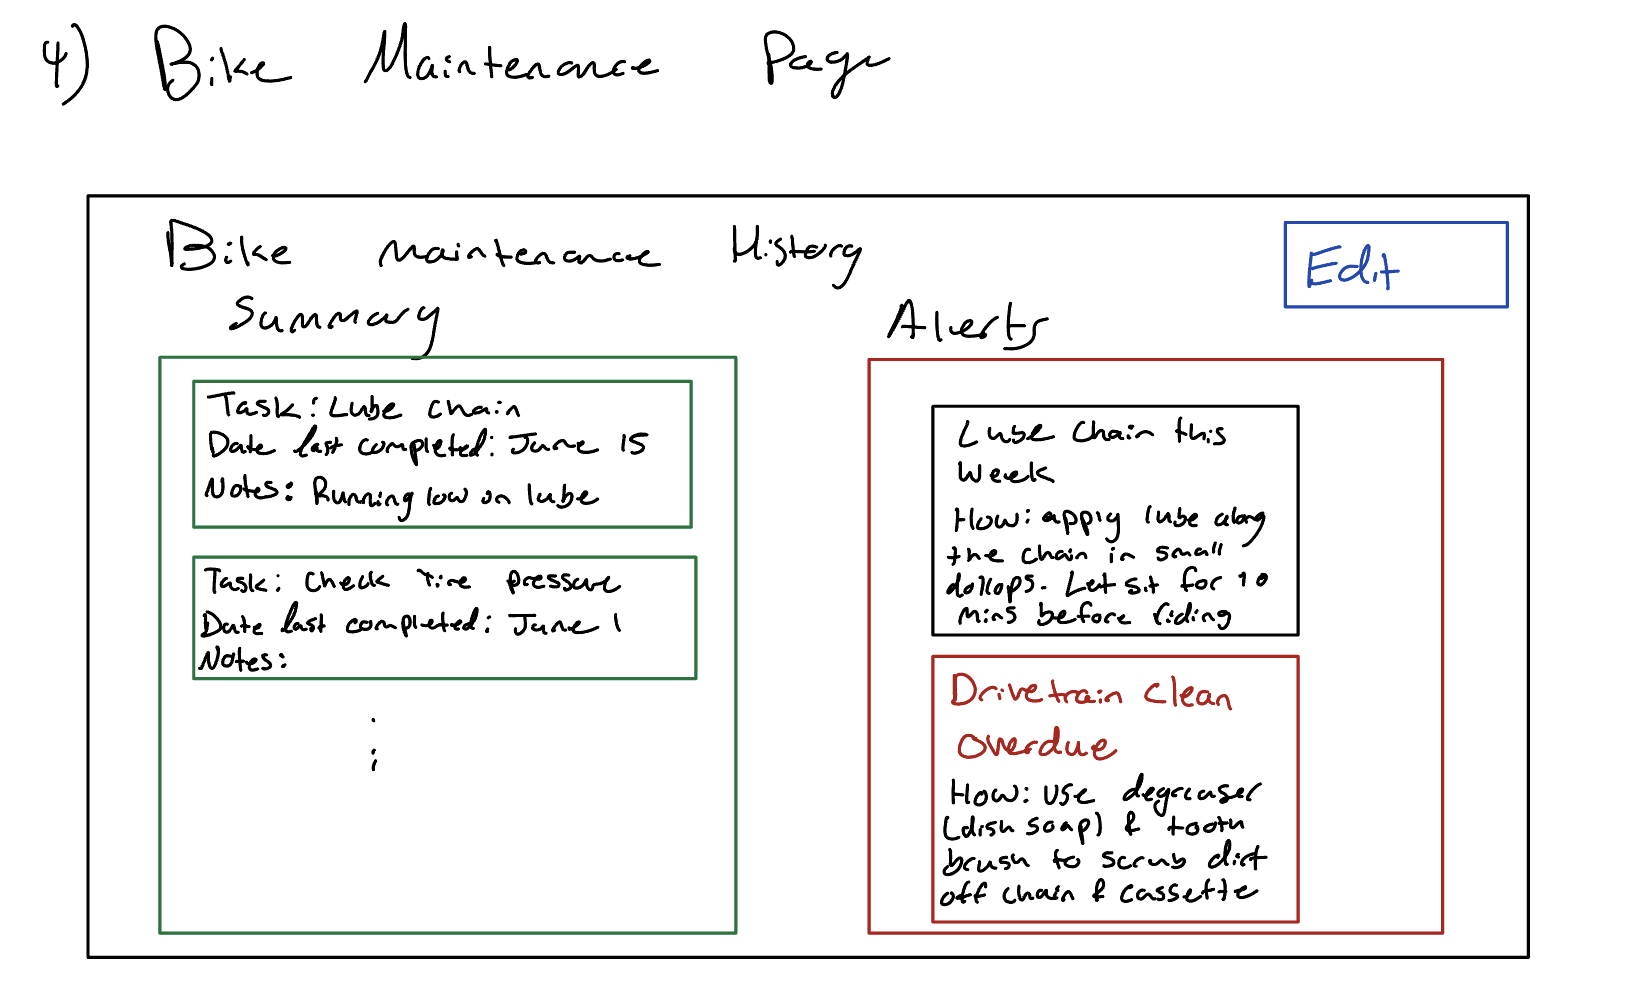 4) Bike Maintenance Page
Bike maintenance History
Summary
Edit
Task: Lube chain
Date last completed: June 15
Notes: Running low on lube
Task: Check Tire pressure
Date last completed: June 1
Notes:
Alerts
Lube Chain this
Week
How: apply lube along
the chain in small
dollops. Let sit for 10
mins before riding
Drivetrain Clean
Overdue
How: Use degreaser
(dish soap) & tooth
brush to scrub dirt
off chain & cassette